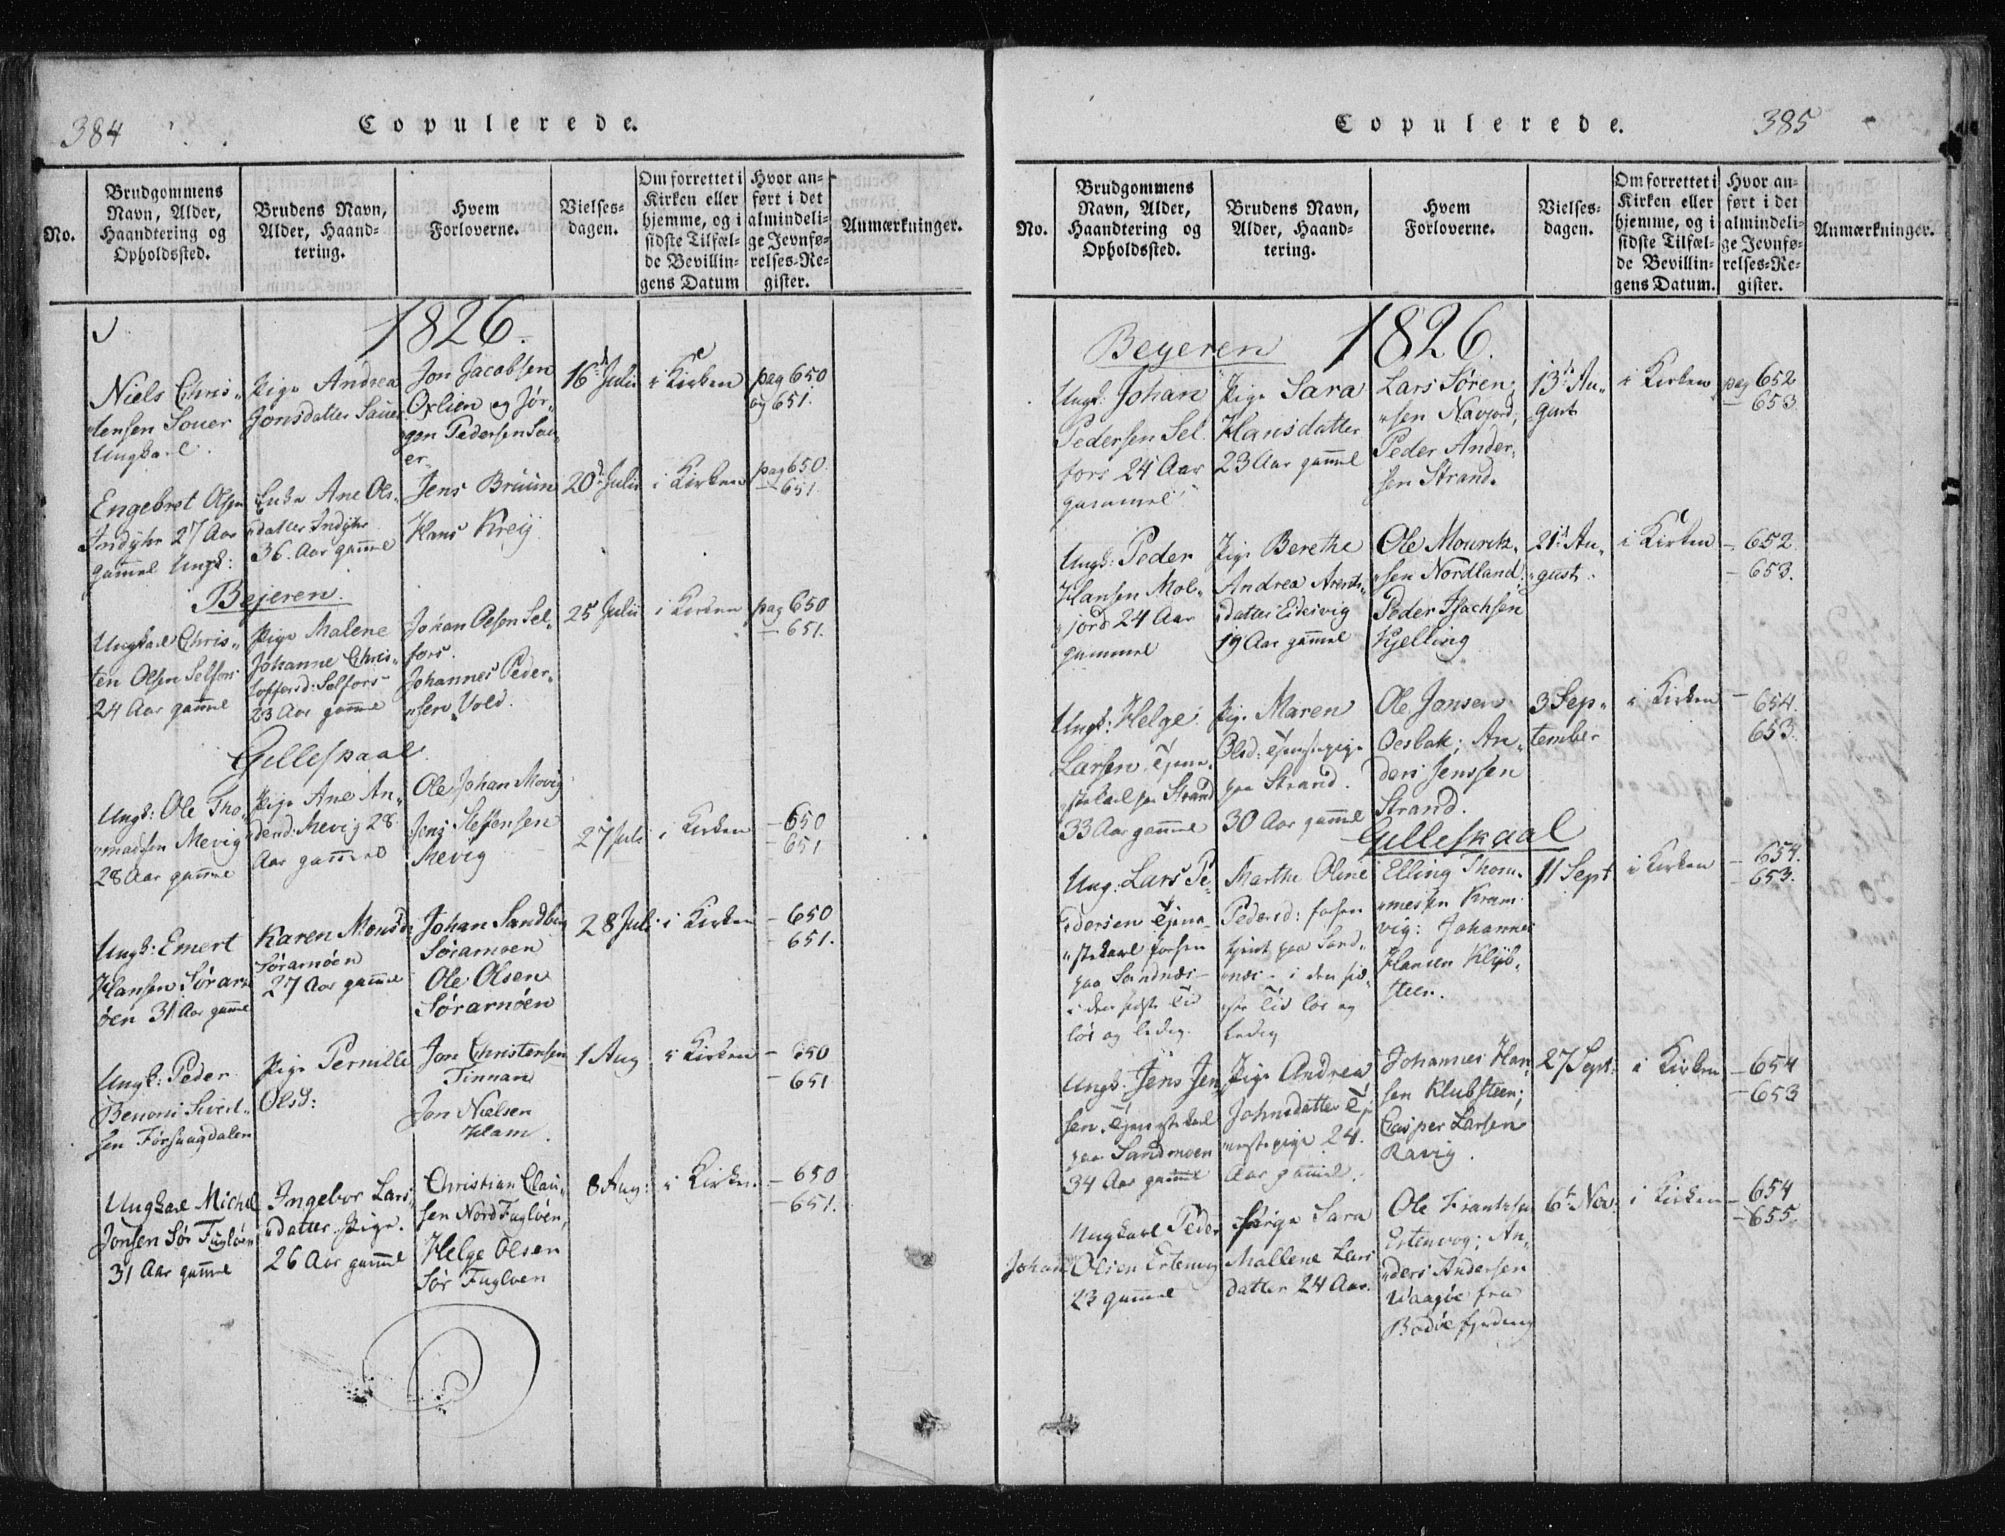 384
Copulerede.
No.
Brudgommens
Navn, Alder,
Haandtering og
Opholdssted.
Brudens Navn,
Alder, Haand-
tering.
Hvem
Forloverne.
Vielses-
dagen.
Om forrettet i
Kirken eller
hjemme, og i
sidste Tilfæl-
de Bevillin-
gens Datum
Hvor an-
ført i det
almindeli-
ge Jevnfø-
relses-Re-
gister.
Anmærkninger.
1826.
Niels Chris-
tensen Souer
Ungkarl.
Pige Andrea
Jonsdatter Sauer
Jon Jacobsen
Oxlien og Jør-
gen Pedersen Sou-
er
16d Julii
i Kirken
pag 650
og 651.
Engebret Olsen
Indyhr 27 Aar
gammel Ungk:
Enke Ane Ols-
datter Indyhr
36. Aar gammel
Jens Bruun
Hans Kreij
20d Julii
i Kirken
pag 650.
— 651.
Bejeren.
Ungkarl Chris-
ten Olsen Selfors
24 Aar gammel
Pige Malene
Johanne Chris-
toffersd: Selfors
23 Aar gammel
Johan Olsen Sel-
fors.
Johannes Peder-
sen Vold.
25 Julii
i Kirken
pag 650
— 651.
Gillespaal.
Ungk: Ole Tho-
madsen Mevig
28 Aar gamme
Pige Ane An-
dersd: Mevig 28
Aar gammel
Ole Johan Movig
Jens Steffensen
Mevig
27 Juli
i Kirken
— 650
— 651
Ungk: Emert
Hansen Sørarn
öen 31 Aar gamml
Karen Monsdr
Sørarnöen
27 Aar gamme
Johan Sandbug
Söramoen
Ole Olsen
Sørarnöen
28 Juli
i Kirken
— 650
— 651.
Ungk: Peder
Benoni Sivert-
sen Forsaagdalen
Pige Pernille
Olsd:
Jon Christensen
Tinnan
Jon Nielsen
Ham.
1 Aug
i Kirken
— 650
— 651
Ungkarl Michel
Jonsen Sör Fuglöen
31 Aar gamml
Ingebor Lars-
datter Pige.
26 Aar gamml
Christian Clau-
sen Nord Fuglöen,
Helge Olsen
Sör Fugloen
8 Aug:
i Kirken.
— 650
— 651.
Copulerede.
385
No.
Brudgommens
Navn, Alder,
Haandtering og
Opholdssted.
Brudens Navn,
Alder, Haand-
tering.
Hvem
Forloverne.
Vielses-
dagen.
Om forrettet i
Kirken eller
hjemme, og i
sidste Tilfæl-
de Bevillin-
gens Datum.
Hvor an-
ført i det
almindeli-
ge Jevnfø-
relses-Re-
gister.
Anmærkninger.
Beyeren 1826.
Ungk: Johan
Pedersen Sel-
fors 24 Aar
gammel
Pige Sara
Hansdatter
23 Aar gamml
Lars Søren-
sen Navjord,
Peder Ander-
sen Strand.
13d Au-
gust
i Kirken
pag 652
— 653.
Ungk: Peder
Hansen Mol-
jord 24 Aar
gammel
Pige Berethe
Andrea Arents-
datter Eidesvig
19 Aar gammel
Ole Mourit-
sen Nordland.
Peder Isachsen
Kjelling
21d Au-
gust.
i Kirken
— 652.
— 653.
Ungk: Helge
Larsen Tjene-
stekarl paa Strand
33 Aar gamme
Pige Maren
Olsd: Tjenestepige
paa Strand.
30 Aar gamml
Ole Jansen
Oesbak; An-
ders Jenssen
Strand.
3 Sep-
tember
i Kirken
— 654.
653.
Gilleskaal
Ung: Lars Pe-
dersen Tjene-
stekarl forhen
paa Sandnæs
i den sidste Tid
lös og ledig.
Marthe Oline
Pedersd: forhen
tjent paa Sand-
næs i den sid-
ste Tid lös og
ledig
Elling Thom-
mesen Kram-
vig: Johannes
Hansen Klyb-
steen.
11 Sept
i Kirken
— 654.
— 653.
Ungk: Jens Jen-
sen Tjenestekarl
paa Sandmoen
34 Aar gamml
Pige Andrea
Johnsdatter Tje
nestepige 24.
Aar gamml.
Johannes Han-
sen Klubsteen;
Casper Larsen
Ravig.
27 Sept:
i Kirken
— 654
— 653
Ungkarl Peder
Johan Olsen Ertenvg
23 gammel
Pige Sara
Mallene Lars
datter 24 Aar.
Ole Frantsen
Ertenvog; An-
ders Andersen
Waagöe fra
Bodöefjerding
6te Nov:
i Kirken
— 654
— 655.